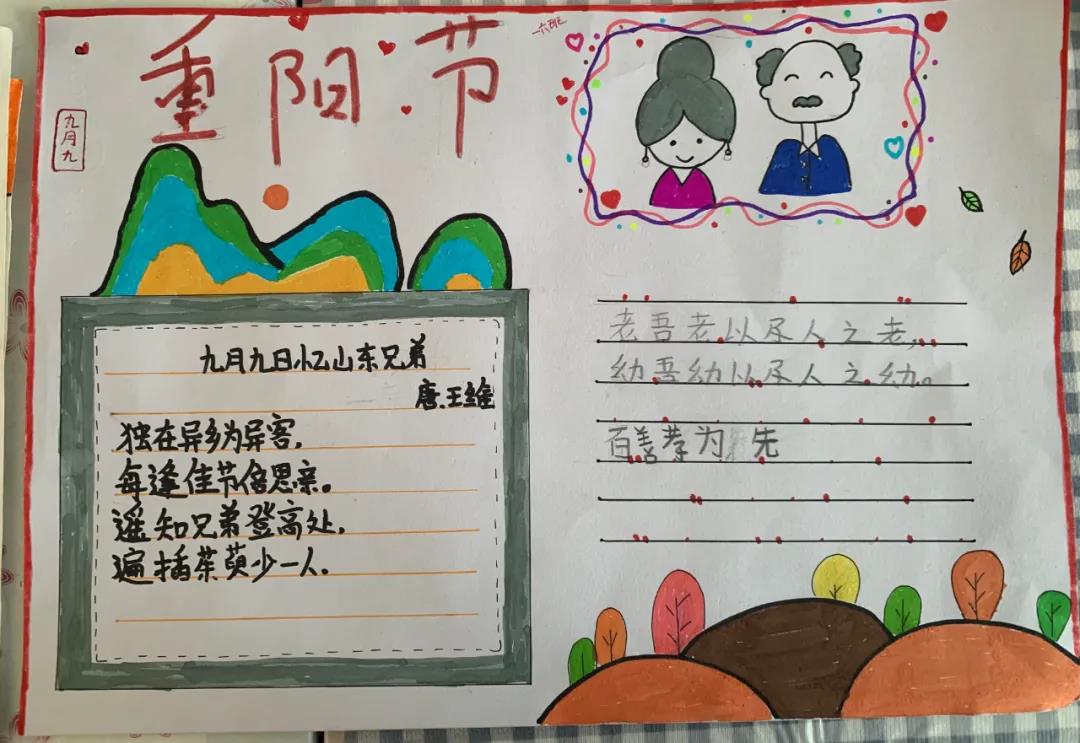 重阳节
一六班
九月九
九月九日忆山东兄弟
唐.王维
独在异乡为异客,
每逢佳节倍思亲。
遥知兄弟登高处,
遍插茱萸少一人.
老吾老以及人之老,
幼吾幼以及人之幼。
百善孝为先